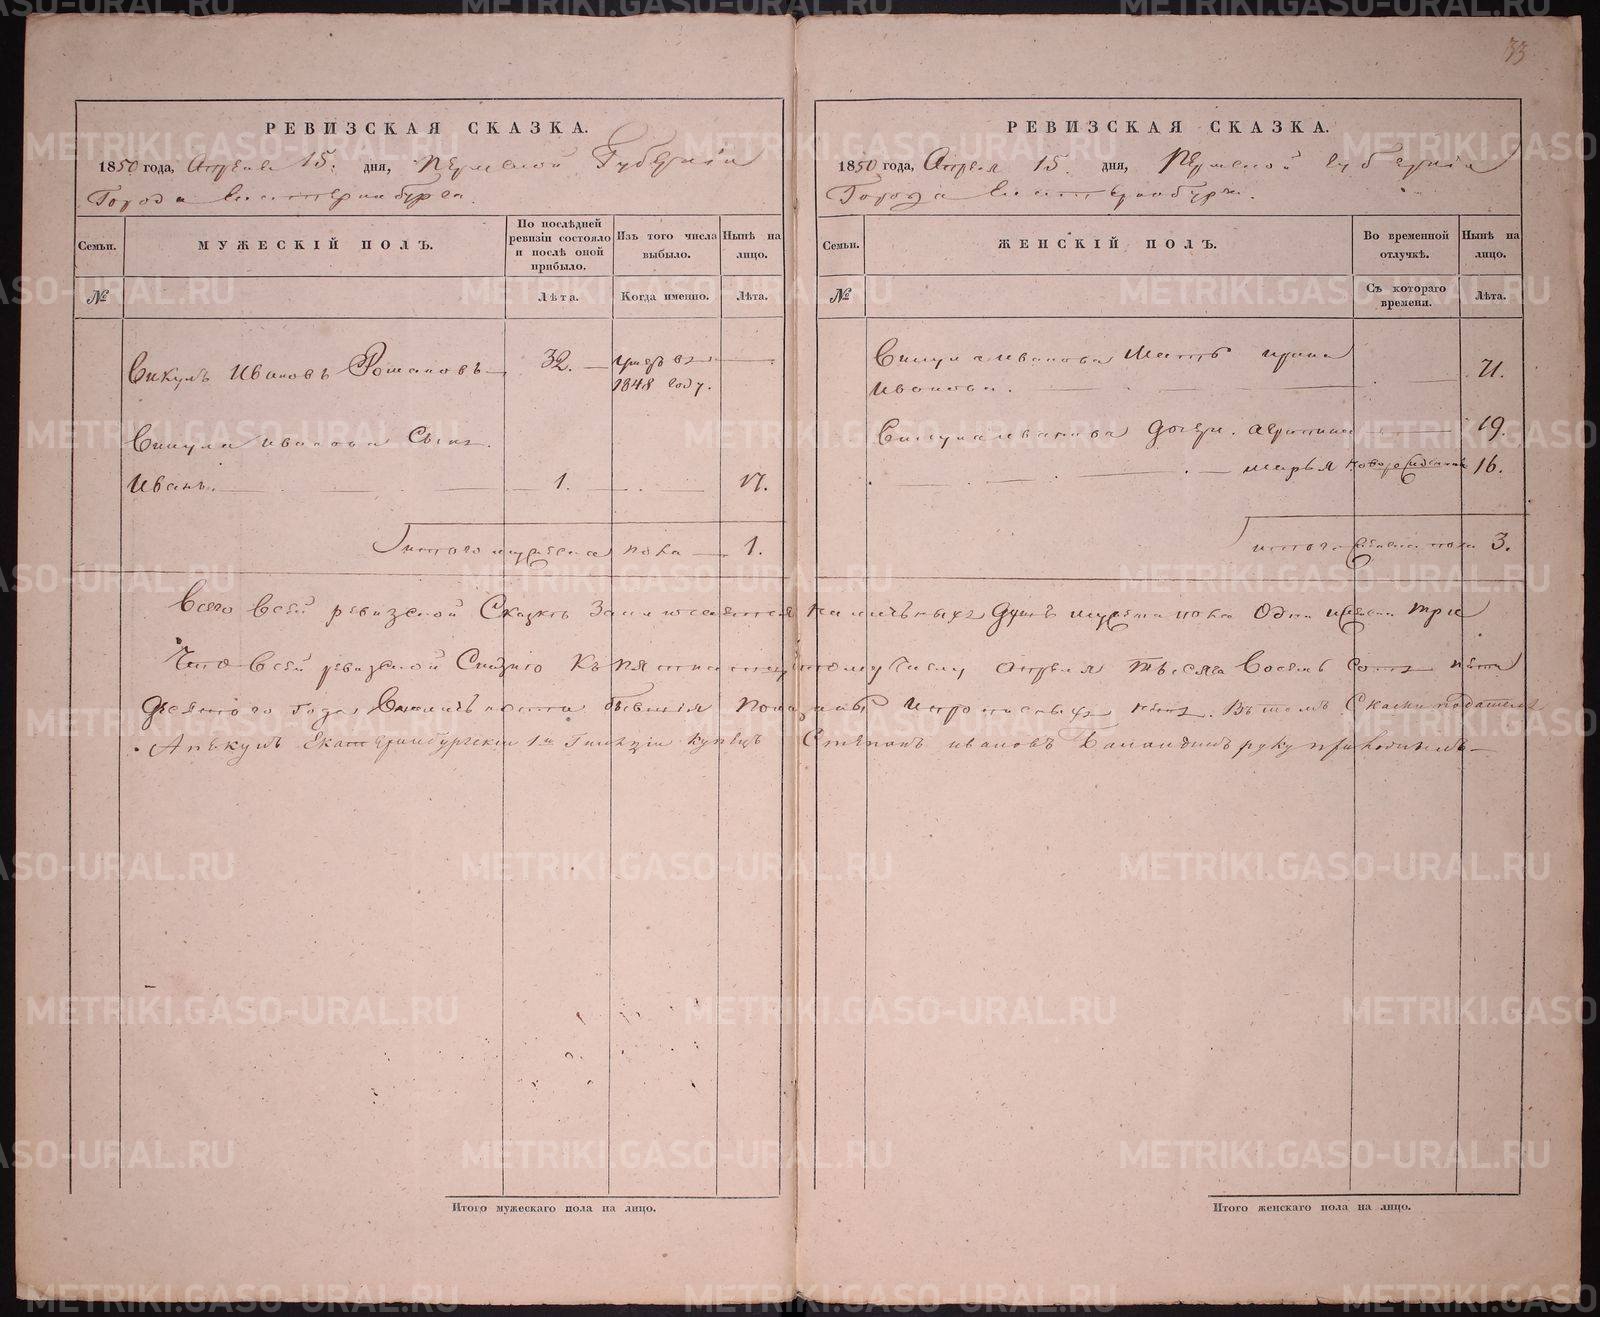 33
РЕВИЗСКАЯ СКАЗКА.
1850 года, Апреля 15. дня, Пермской Губернiи
Города Екатеринбурга.
Семьи.
МУЖЕСКІЙ ПОЛЪ.
По послѣдней ревизіи состояло и послѣ оной прибыло.
Изъ того числа выбыло.
Нынѣ на лицо.
№
Лѣта.
Когда именно.
Лѣта.
Викулъ Ивановъ 32.
1848 году.
Викула Иванова Сынъ.
Иванъ. 1. 17.
итого мужеска пола 1.
РЕВИЗСКАЯ СКАЗКА.
1850 года, Апреля 15. дня, Пермской губернiи
Города Екатеринбурга.
Семьи.
ЖЕНСКІЙ ПОЛЪ.
Во временной отлучкѣ.
Нынѣ на лицо.
№
Съ котораго времени.
Лѣта.
Викула Иванова Мать Ирина
Иванова. 71.
Викула Иванова дочери. 19.
марья 16.
итого женска пола 3.
Всего всей ревизской Сказкѣ наличныхъ душъ мужеска пола Одна женска три
Что всей ревизской Сказке Къ пятнатцатому числу апреля тысяча Восемь сотъ пять
десятого года. нетъ. Въ томъ Сказки
Екатеринбургскiи 1й Гильдiи купецъ Степанъ Ивановъ руку приложилъ
Итого мужескаго пола на лицо.
Итого женскаго пола на лицо.
METRIKI.GASO-URAL.RU